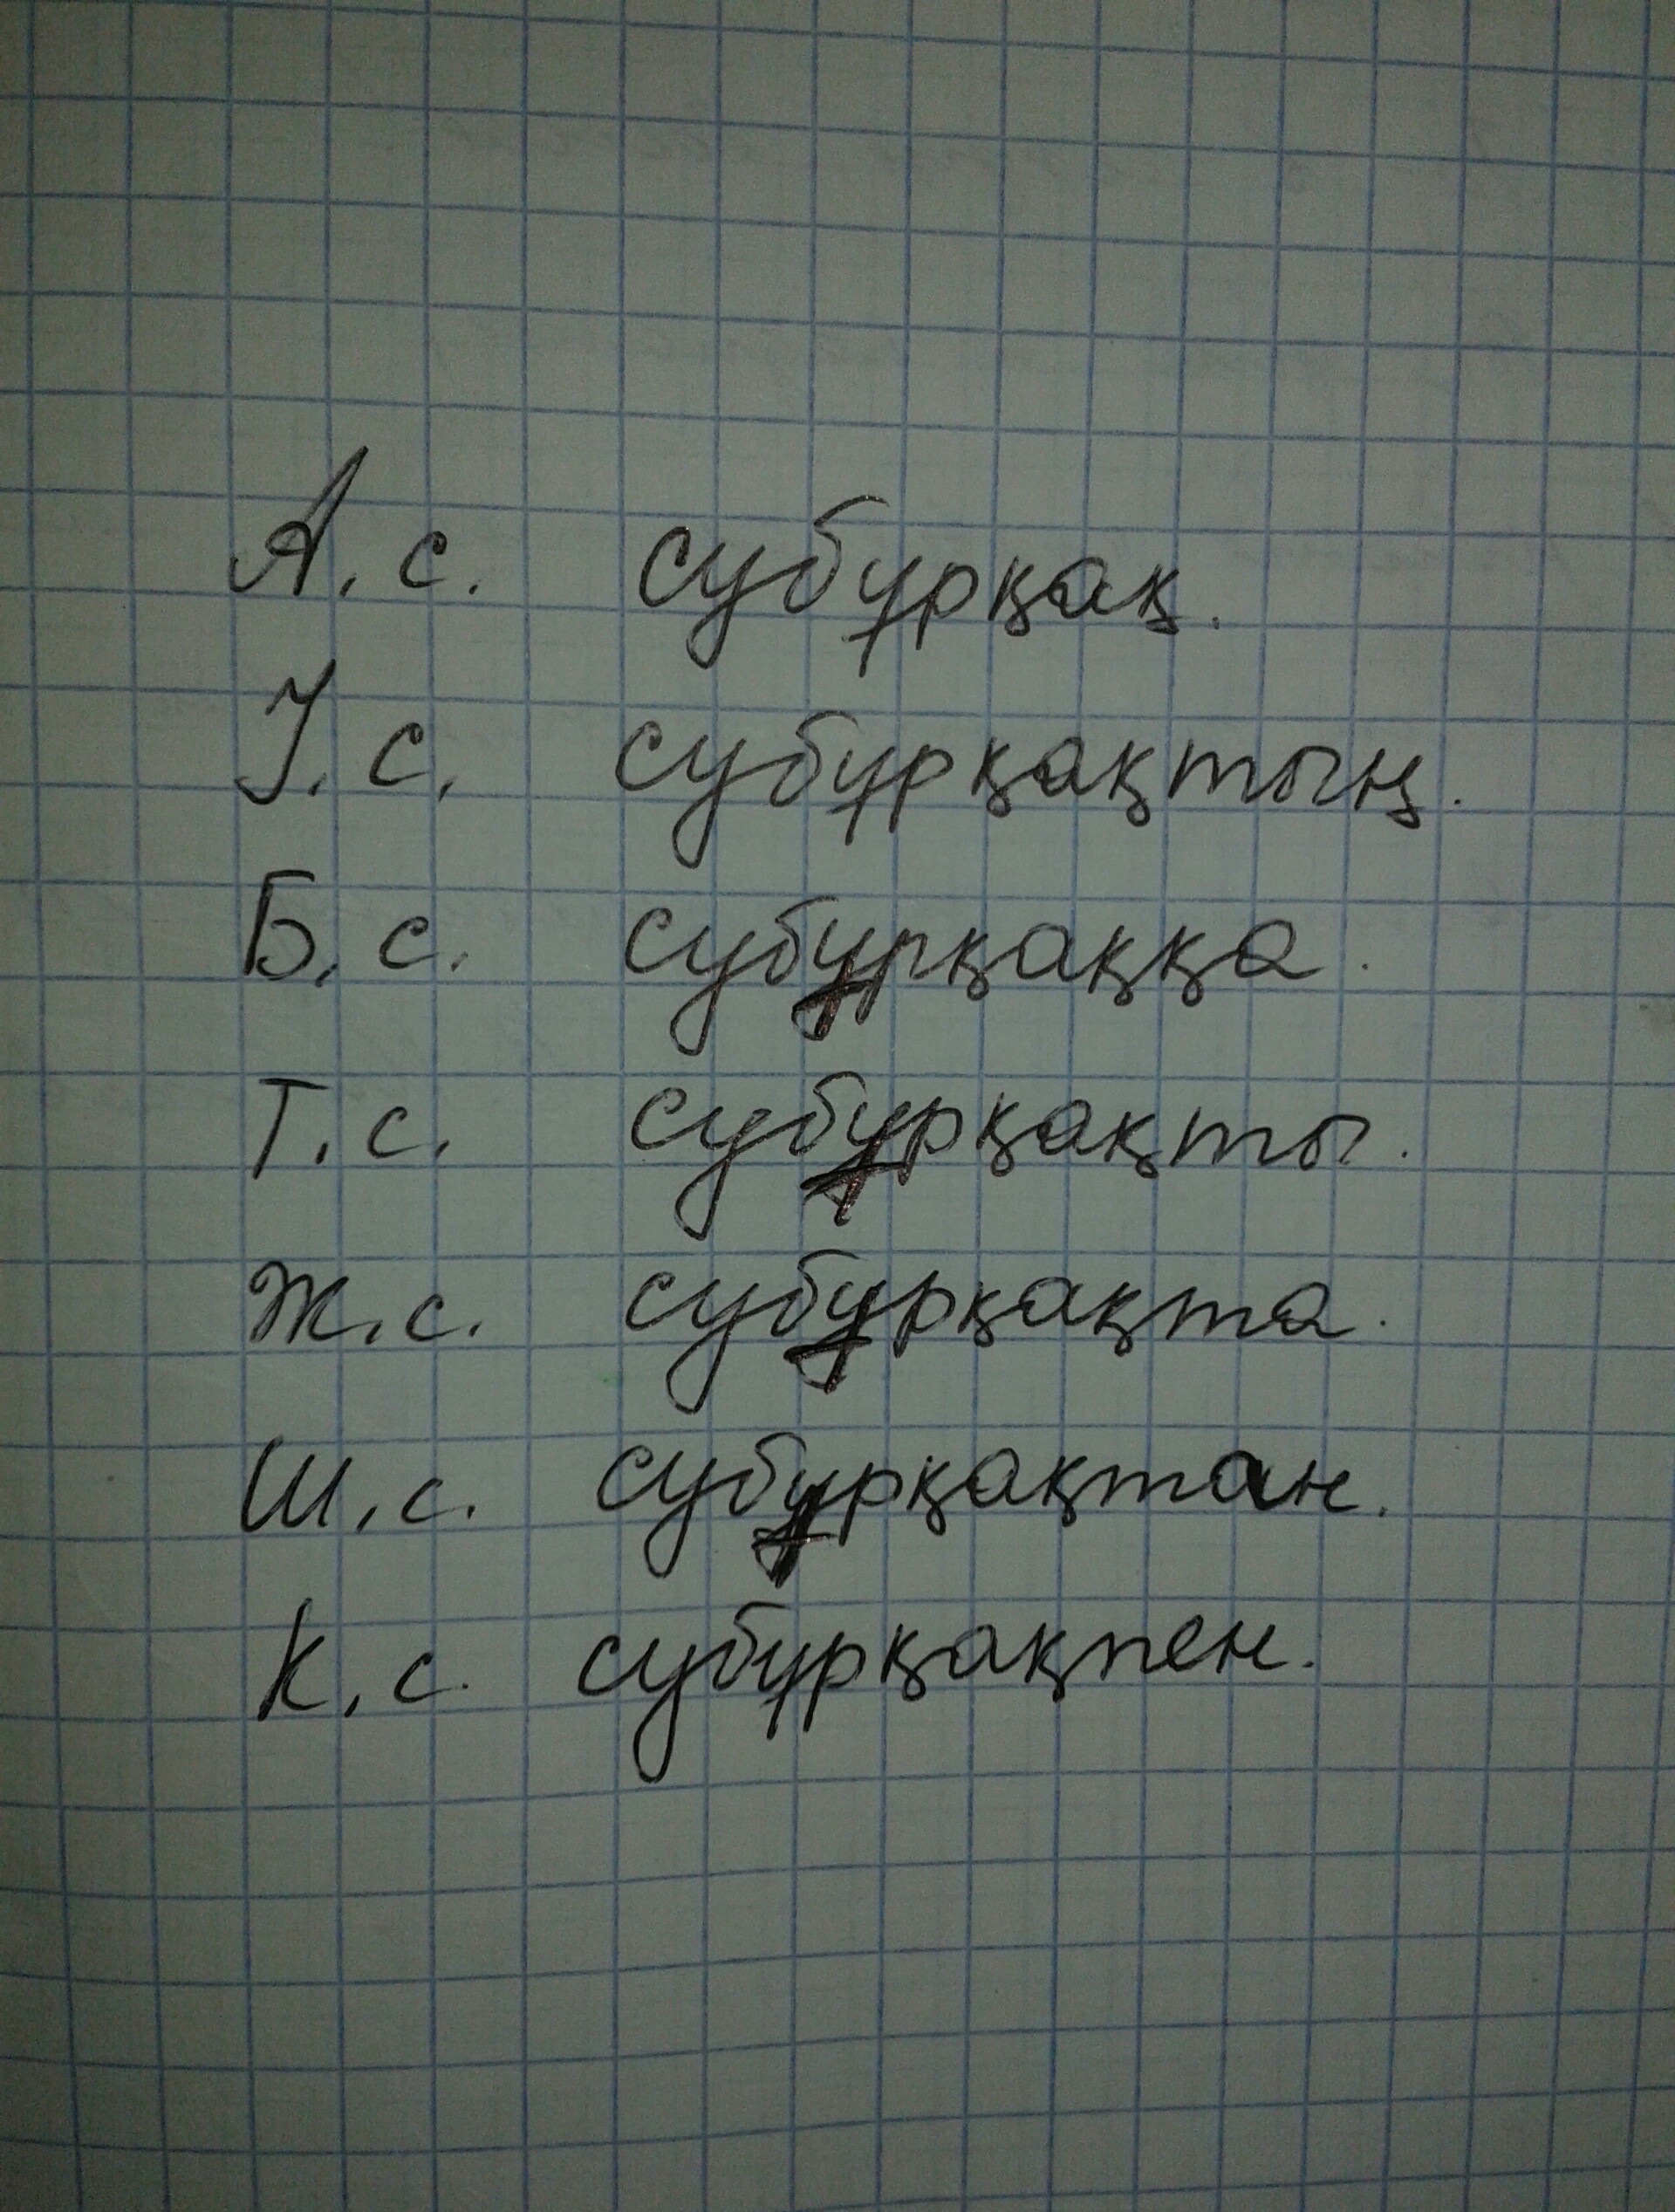 А. с. субұрқақ.
І. с. субұрқақтың.
Б. с. субұрқаққа.
Т. с. субұрқақты.
Ж. с. субұрқақта.
Ш. с. субұрқақтан.
К. с. субұрқақпен.